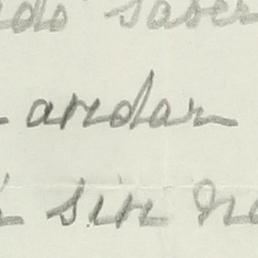 do saber
andar
sin